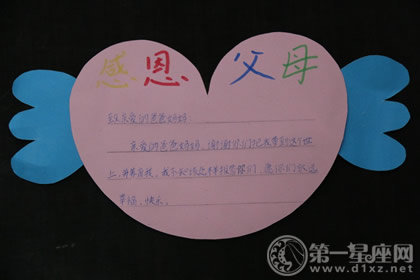 感恩 父母
致亲爱的爸爸妈妈
亲爱的爸爸妈妈,谢谢你们把我带到这个世
上,并养育我,我不知该怎样报答你们,愿你们永远
幸福,快乐。
第一星座网
www.d1xz.net